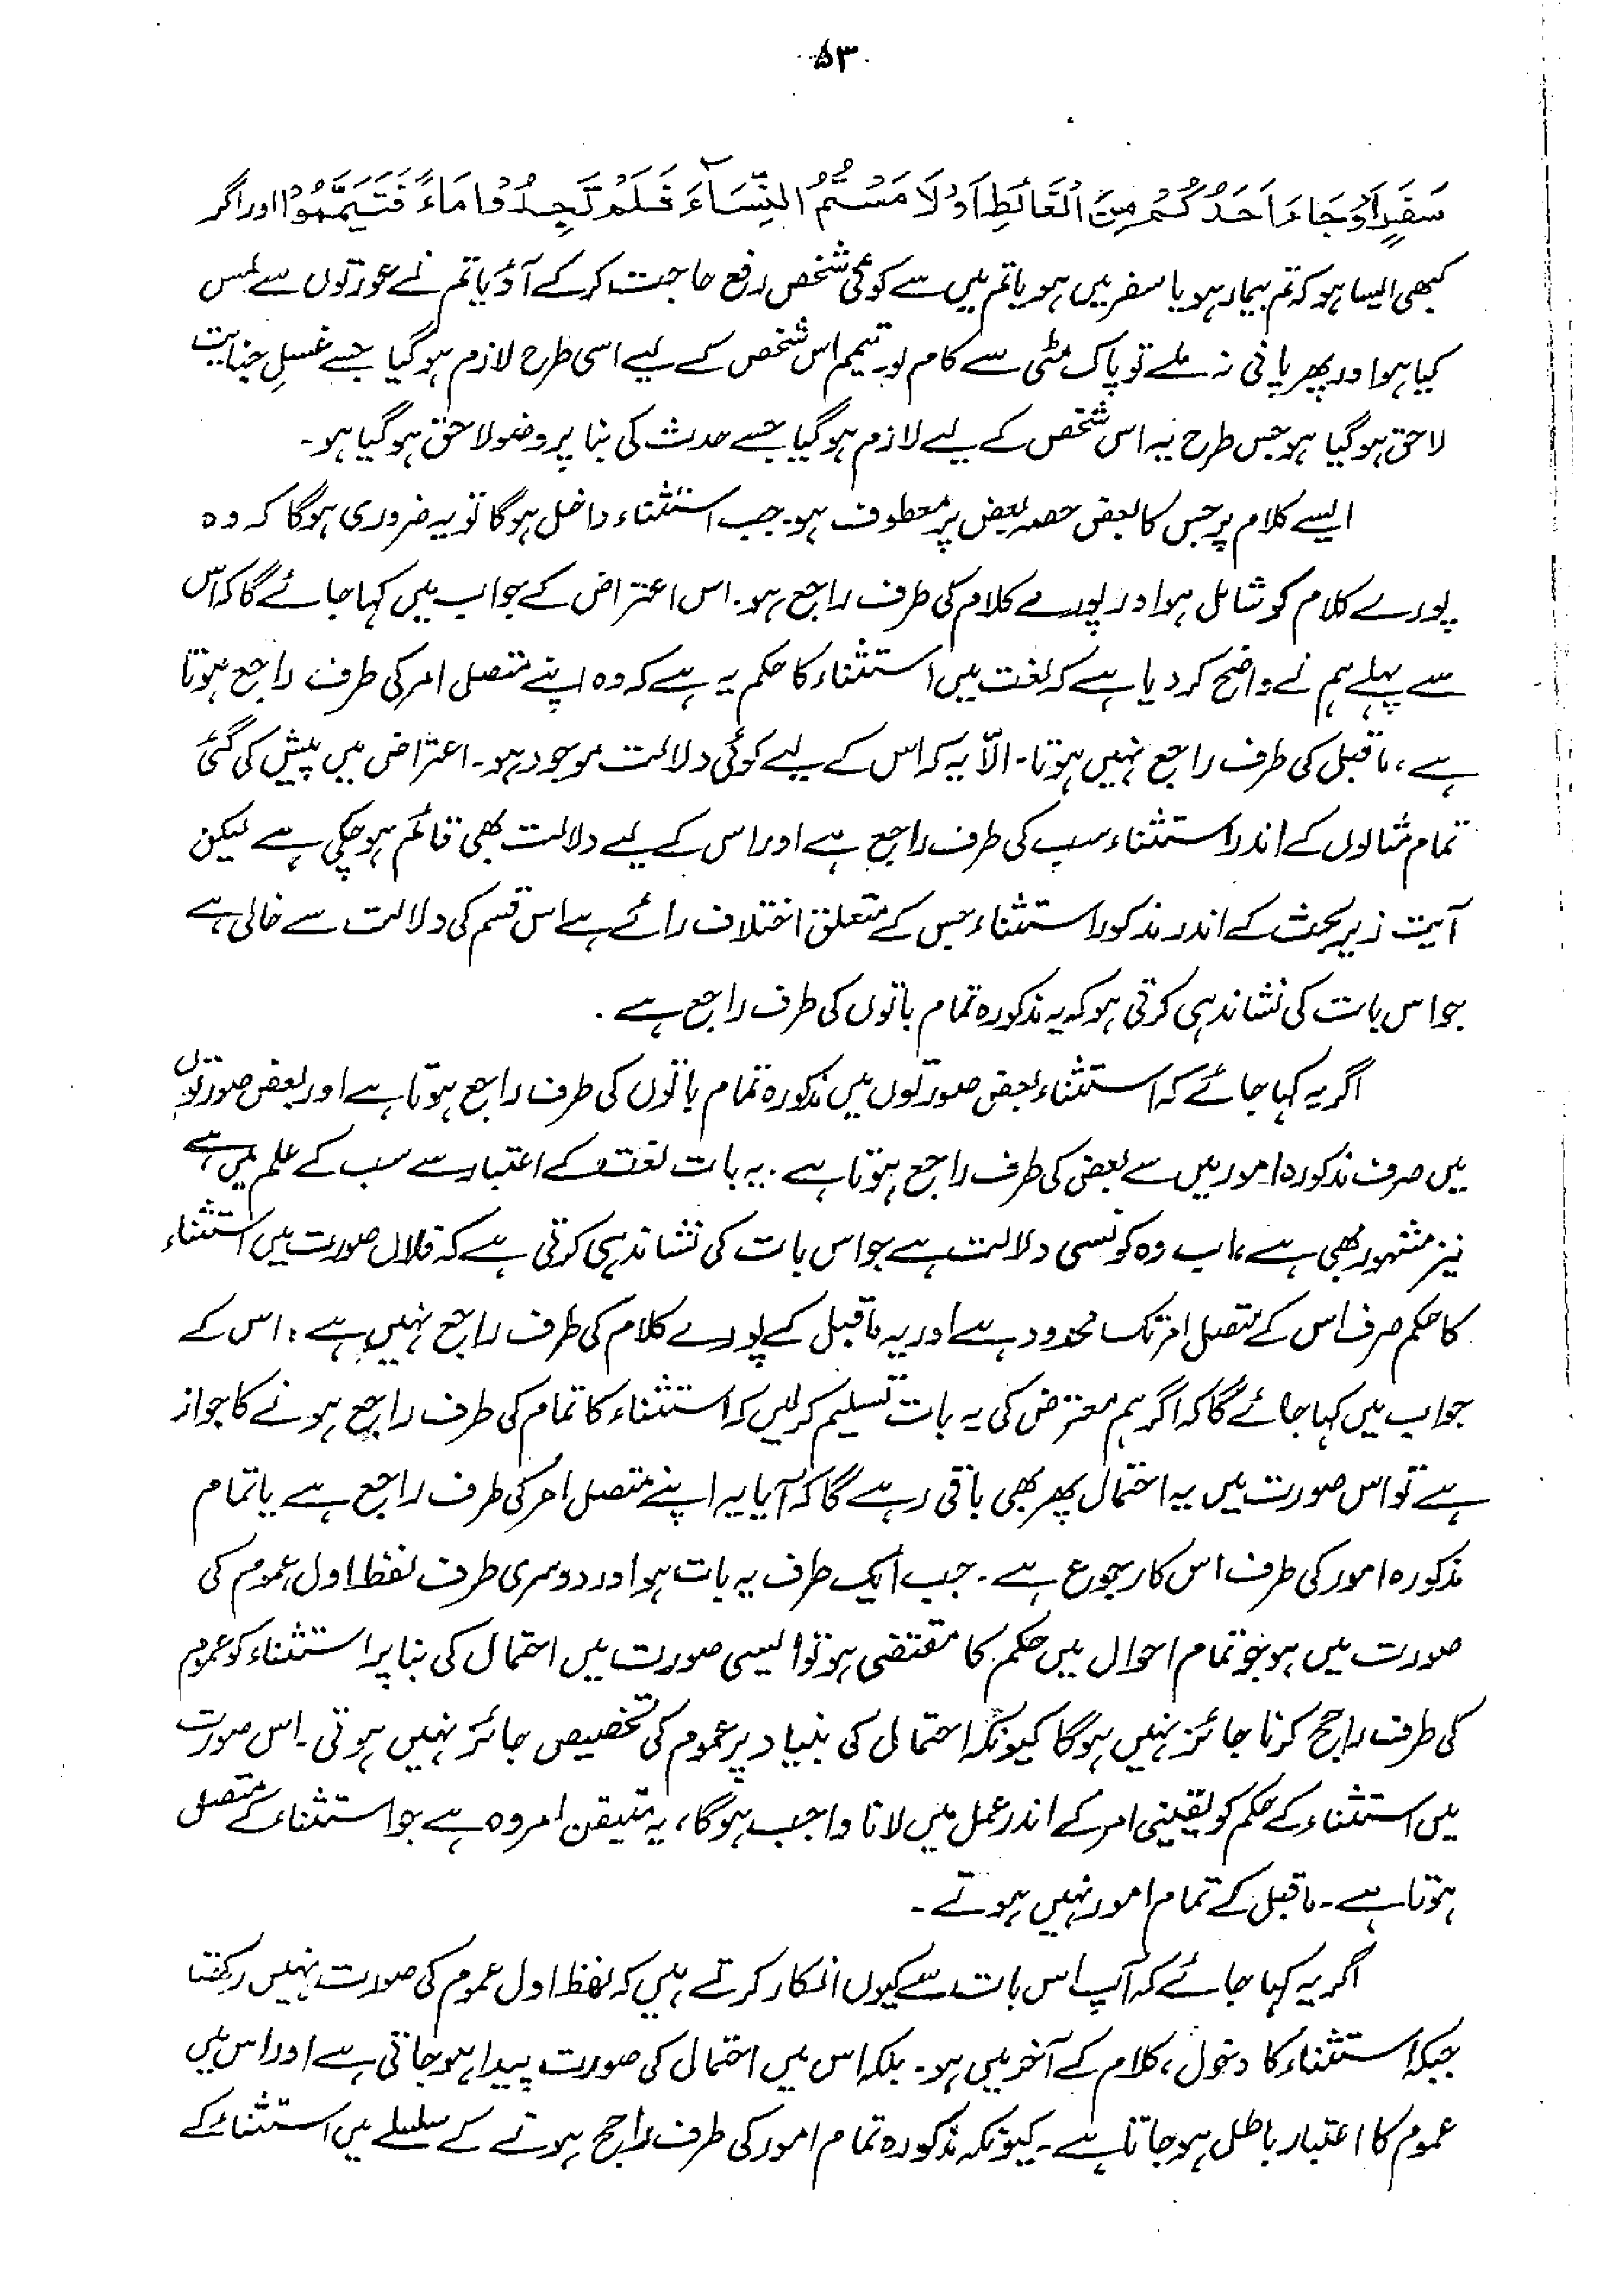 ۵۳
سَفَرٍ اَوْ جَاءَ اَحَدٌ كُمْ مِنَ الْغَائِطِ اَوْ لَا مَسْتُمُ النِّسَآءَ فَلَمْ تَجِدُوْا مَاءً فَتَيَمَّمُوْا اور اگر
کبھی ایسا ہو کہ تم بیمار ہو یا سفر میں ہو یا تم میں سے کوئی شخص رفع حاجت کر کے آؤ یا تم نے عورتوں سے لمس
کیا ہو اور پھر پانی نہ ملے تو پاک مٹی سے کام لو۔ تیمم اس شخص کے لیے اسی طرح لازم ہوگیا جسے غسلِ جنابت
لاحق ہوگیا ہو جس طرح یہ اس شخص کے لیے لازم ہوگیا جسے حدث کی بنا پر وضو لاحق ہوگیا ہو۔
ایسے کلام پر جس کا بعض حصہ بعض پر معطوف ہو۔ جب استثناء داخل ہوگا تو یہ ضروری ہوگا کہ وہ
پورے کلام کو شامل ہو اور پورے کلام کی طرف راجع ہو۔ اس اعتراض کے جواب میں کہا جائے گا کہ اس
سے پہلے ہم نے واضح کر دیا ہے کہ لغت میں استثناء کا حکم یہ ہے کہ وہ اپنے متصل امر کی طرف راجع ہوتا
ہے، ماقبل کی طرف راجع نہیں ہوتا۔ الّا یہ کہ اس کے لیے کوئی دلالت موجود ہو۔ اعتراض میں پیش کی گئی
تمام مثالوں کے اندر استثناء سب کی طرف راجع ہے اور اس کے لیے دلالت بھی قائم ہوچکی ہے لیکن
آیت زیر بحث کے اندر مذکور استثناء جس کے متعلق اختلاف رائے ہے اس قسم کی دلالت سے خالی ہے
جو اس بات کی نشاندہی کرتی ہو کہ یہ مذکورہ تمام باتوں کی طرف راجع ہے۔
اگر یہ کہا جائے کہ استثناء بعض صورتوں میں مذکورہ تمام باتوں کی طرف راجع ہوتا ہے اور بعض صورتوں
میں صرف مذکورہ امور میں سے بعض کی طرف راجع ہوتا ہے۔ یہ بات لغت کے اعتبار سے سب کے علم میں ہے
نیز مشہور بھی ہے، اب وہ کونسی دلالت ہے جو اس بات کی نشاندہی کرتی ہے کہ فلاں صورت میں استثناء
کا حکم صرف اس کے متصل امر تک محدود ہے اور یہ ماقبل کے پورے کلام کی طرف راجع نہیں ہے؛ اس کے
جواب میں کہا جائے گا کہ اگر ہم معترض کی یہ بات تسلیم کر لیں کہ استثناء کا تمام کی طرف راجع ہونے کا جواز
ہے تو اس صورت میں یہ احتمال پھر بھی باقی رہے گا کہ آیا یہ اپنے متصل امر کی طرف راجع ہے یا تمام
مذکورہ امور کی طرف اس کا رجوع ہے۔ جب ایک طرف یہ بات ہو اور دوسری طرف لفظ اول عموم کی
صورت میں ہو جو تمام احوال میں حکم کا مقتضی ہو تو ایسی صورت میں احتمال کی بنا پر استثناء کو عموم
کی طرف راجح کرنا جائز نہیں ہوگا کیونکہ احتمال کی بنیاد پر عموم کی تخصیص جائز نہیں ہوتی۔ اس صورت
میں استثناء کے حکم کو یقینی امر کے اندر عمل میں لانا واجب ہوگا، یہ متیقن امر وہ ہے جو استثناء کے متصل
ہوتا ہے۔ ماقبل کے تمام امور نہیں ہوتے۔
اگر یہ کہا جائے کہ آپ اس بات سے کیوں انکار کرتے ہیں کہ لفظ اول عموم کی صورت نہیں رکھتا
جبکہ استثناء کا دخول، کلام کے آخر میں ہو۔ بلکہ اس میں احتمال کی صورت پیدا ہو جاتی ہے اور اس میں
عموم کا اعتبار باطل ہو جاتا ہے۔ کیونکہ مذکورہ تمام امور کی طرف راجح ہونے کے سلسلے میں استثناء کے